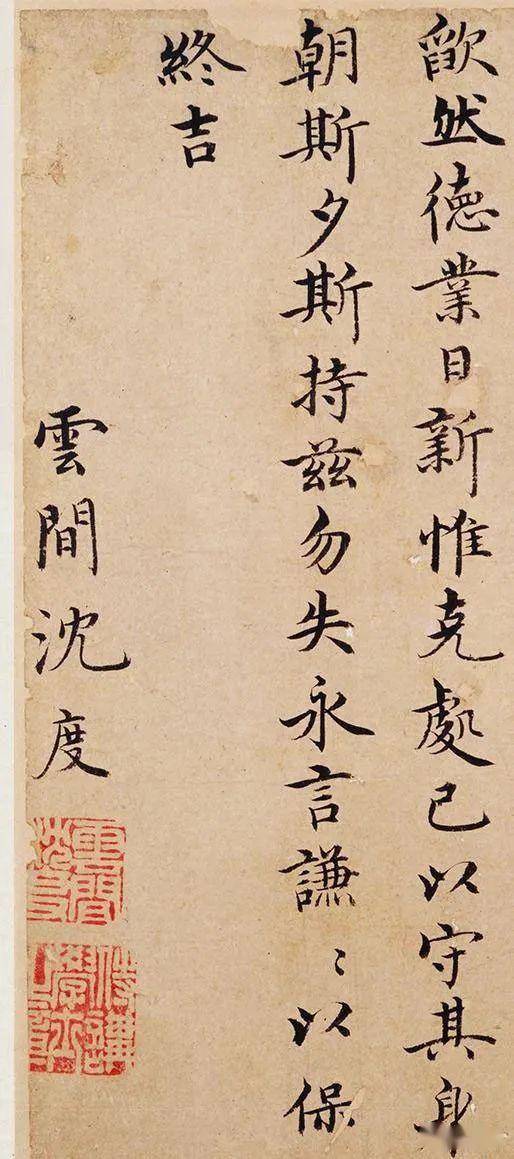 欿然德業日新惟克處己以守其身
朝斯夕斯持兹勿失永言謙〻以保
終吉
雲間沈度